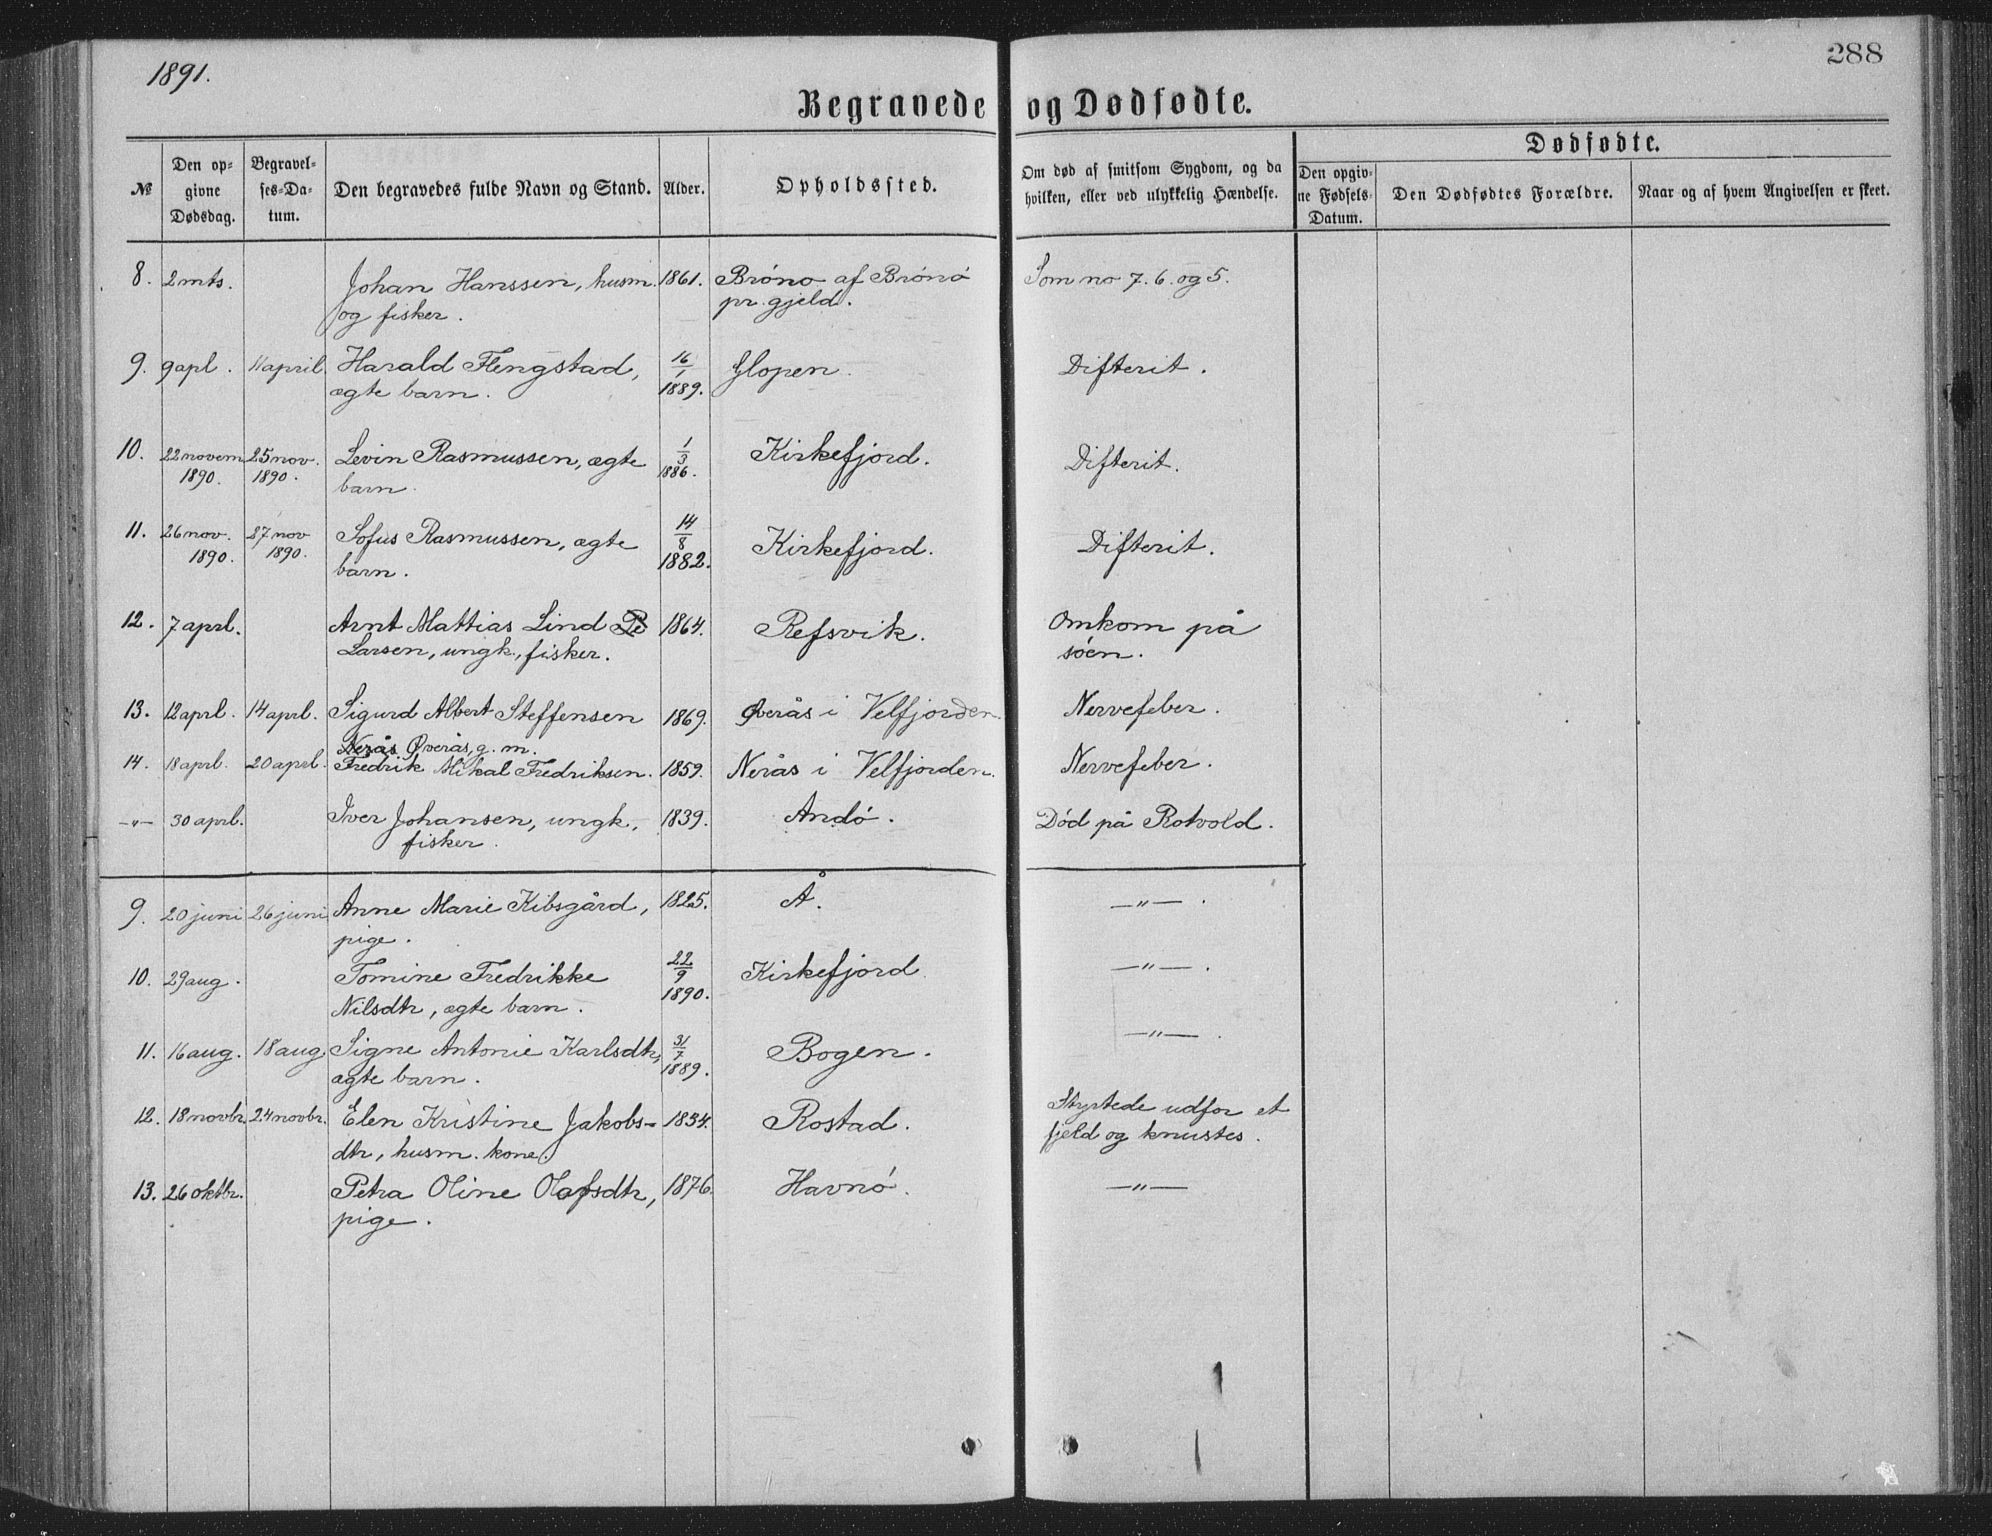 1891.
288
Begravede og Dødfødte.
Dødfødte.
№
Den op-
givne
Dødsdag.
Begravel-
ses-Da-
tum.
Den begravedes fulde Navn og Stand.
Alder.
Opholdssted.
Om død af smitsom Sygdom, og da
hvilken, eller ved ulykkelig Hændelse.
Den opgiv-
ne Fødsels-
Datum.
Den Dødfødtes Forældre.
Naar og af hvem Angivelsen er skeet.
8. 2 mts. Johan Hanssen, husm. 1861. Brónó af Brónó Som no 7. 6. og 5.
og fisker. pr. gjeld.
9. 9 apl. 11 april. Harald Flengstad, 16/1 Glopen. Difterit.
ægte barn. 1889.
10. 22 novem 25 nov. Levin Rasmussen, ægte 1/3 Kirkefjord. Difterit.
1890. 1890. barn. 1886.
11. 26 nov. 27 nov Sofus Rasmussen, ægte 14/8 Kirkefjord. Difterit.
1890. 1890. barn. 1882.
12. 7 aprl. Arnt Mattias Lind Pe 1864. Refsvik. Omkom på
Larsen, ungk., fisker. sóen.
13. 12 aprl. 14 aprl. Sigurd Albert Steffensen 1869. Øverås i Velfjorden. Nervefeber.
Nerås Øverås, g. m.
14. 18 aprl. 20 aprl. Fredrik Mikal Fredriksen. 1859. Nerås i Velfjorden. Nervefeber.
-"- 30 aprl. Iver Johansen, ungk., 1839. Andó. Dód på Rotvold.
fisker.
9. 20 juni 26 juni Anne Marie Kibsgård, 1825. Å. -"-.
pige.
10. 29 aug. Tomine Fredrikke 22/9 Kirkefjord. -"-.
Nilsdtr, ægte barn. 1890.
11. 16 aug. 18 aug Signe Antonie Karlsdtr, 31/7 Bogen. -"-.
ægte barn. 1889.
12. 18 novbr. 24 novbr. Elen Kristine Jakobs- 1834. Rostad. Styrtede udfor et
dtr, husm. kone. fjeld og knustes.
13. 26 oktbr. Petra Oline Olafsdtr, 1876. Havnó. -"-
pige.